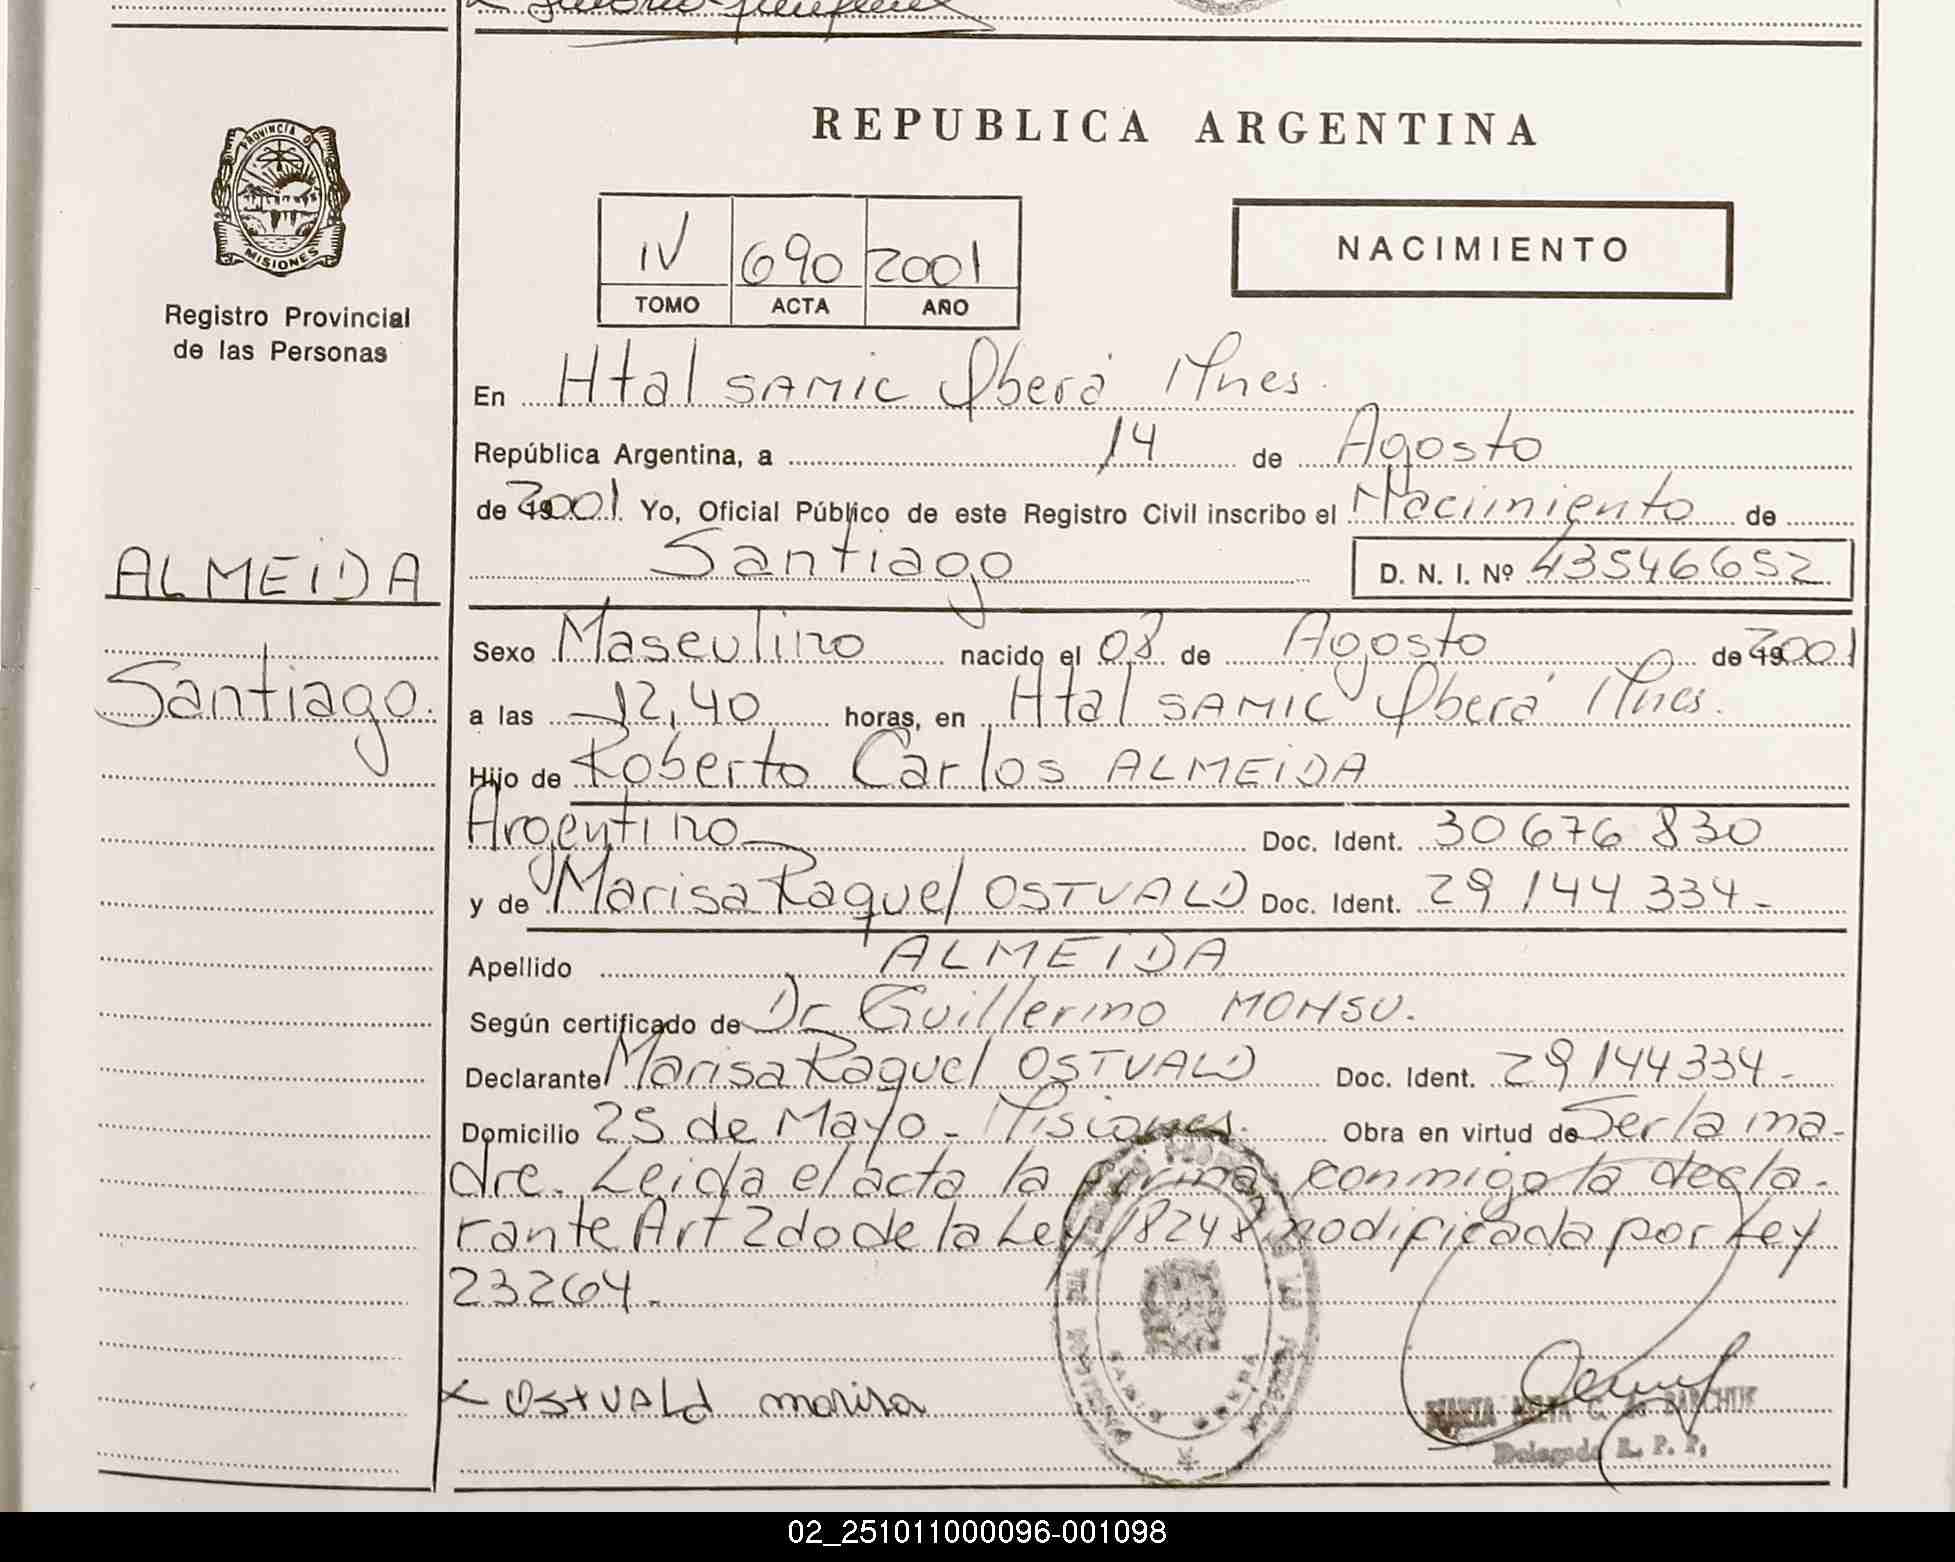 REPUBLICA ARGENTINA
PROVINCIA DE MISIONES
Registro Provincial
de las Personas
IV 690 2001
TOMO ACTA AÑO
NACIMIENTO
En Htal SAMIC Oberá Mnes.
República Argentina, a 14 de Agosto
de 19 2001 Yo, Oficial Público de este Registro Civil inscribo el Nacimiento de
Santiago D. N. I. Nº 43546652
ALMEIDA
Santiago.
Sexo Masculino nacido el 08 de Agosto de 19 2001
a las 12,40 horas, en Htal SAMIC Oberá Mnes.
Hijo de Roberto Carlos ALMEIDA
Argentino Doc. Ident. 30676830
y de Marisa Raquel OSTVALD Doc. Ident. 29144334-
Apellido ALMEIDA
Según certificado de Dr Guillermo MONSU.
Declarante Marisa Raquel OSTVALD Doc. Ident. 29144334-
Domicilio 25 de Mayo - Misiones. Obra en virtud de Ser la ma-
dre. Leida el acta la firma conmigo la decla-
rante Art 2do de la Ley 18248 modificada por Ley
23264.
x OSTVALd marisa
Delegada R. P. P.
02_251011000096-001098